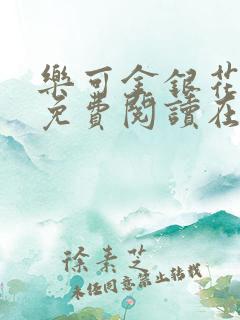 樂可金銀花
免費閱讀在
徐素芝
未經同意禁止轉載